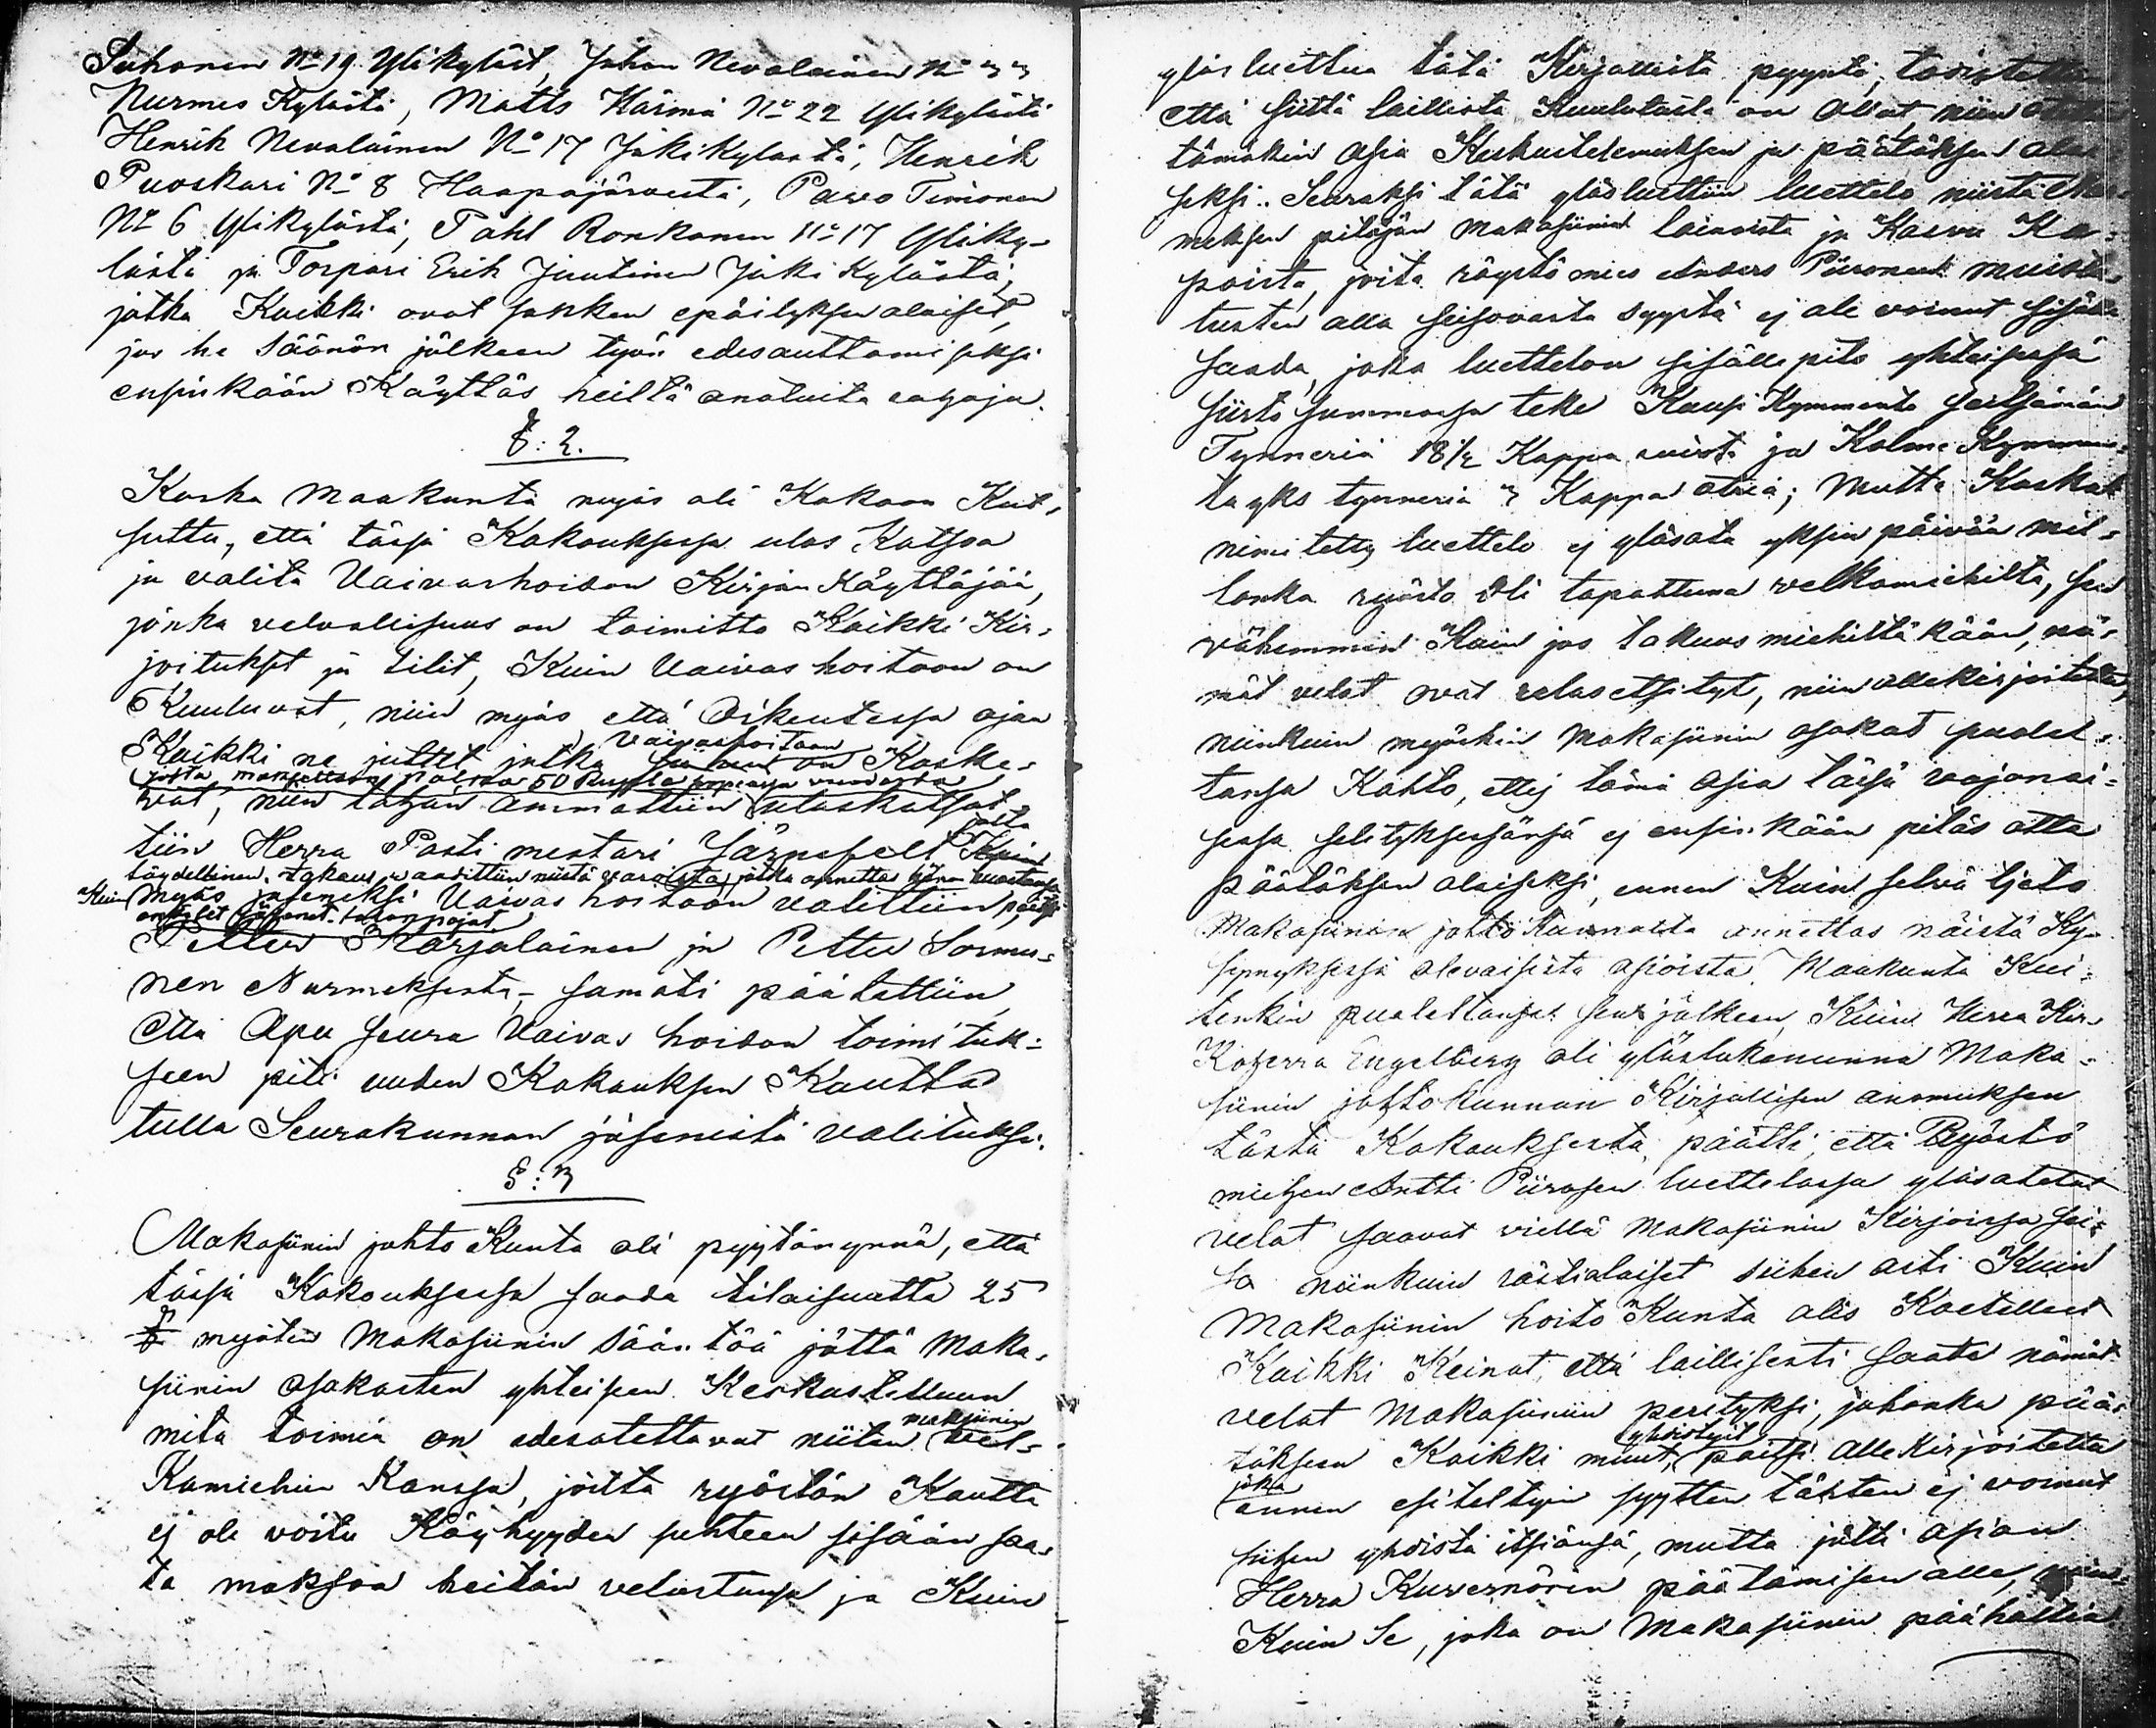 Suhonen No 19 Ylikyläst, Johan Nevalainen No 33
Nurmes Kylästä, Matts Kärmä No 22 Ylikylästä
Henrik Nevalainen No 17 Jokikylastä, Henrik
Puoskari No 8 Haapajärvestä, Paavo Timonen
No 6 Ylikylästä, Påhl Ronkanen No 17 Yliky-
lästä ja Torpari Erik Juutinen Joki Kylästä,
jotka Kaikki ovat sakken epäilyksen alaiset,
jos he Säänön jälkeen työn edesauttamiseksi
ensinkään Käyttäs heiltä anotuita
§: 2.
Koska Maakunta myös oli Kokoon Kut-
suttu, että täsä Kokouksessa ulos Katsoa
ja valita Vaivashoidon Kirjan Käyttäjää,
jonka velvollisuus on toimitta Kaikki Kir-
joitukset ja tilit, Kuin Vaivas hoitoon on
Kuuluvat, niin myös että Oikeutessa ajaa
Vaivashoitoon
Kaikki ne juttut jotka on Koske-
josta maksettaan palkkaa 50 Ruplaa hopeassa vuodessa
vat, niin tähän ammattiin uloskatsot-
tiin Herra Posti mestari Järnefelt
täydellinen takaus vaadittiin niistä varoista, jotka annetta hänen
Kuin Myös jäseneksi Vaivas hoitoon valittiin, paitsi
entiset jäsenet
Petter Karjalainen ja Petter Sormu-
nen Nurmeksesta, - samoti päätettiin,
että Apu Seura Vaivas hoidon toimituk-
seen piti uuden Kokouksen Kautta
tulla Seurakunnan jäsenistä valituksi.
§: 3
Makasiinin johto Kunta oli pyytänynnä, että
täsjä Kokouksessa saada tilaisuutta 25
§ myöten Makasiinin Sääntöä jättä Maka-
siinin osakasten yhteiseen Keskusteluun
makasiinin
mitä toimia on edesotettavat niiten vel-
Kamiehin Kanssa, joilta ryöstön Kautta
ej ole voitu Köyhyyden suhteen sisään saa-
ta maksoa heitän velastansa ja Kuin
ylös luettua tätä Kirjallista pyyntö,
että siitä laillista Kuulutusta on ollut niin
tämäkin asia Keskustelemuksen ja päätöksen
seksi. Seuraksi tätä ylösluettiin luettelo niistä
meksen pitäjän Makasiinin lainoista ja Kasvu Ka-
poista, joita röystö mies Anders Piironen
tusten alla seisovasta syystä ej ole voinut sisälle
saada, joka luettelon sisälle pito yhteisessä
siirto summassa teke Kaksi Kymmentä seitsämän
Tynneriä 18 1/2 Kappa ruista ja Kolme Kymmen-
tä yks tynneria 3 Kappa otria; Mutta Koska
nimitetty luettelo ej ylösota yksin päivää mil-
lonka ryösto oli tapahtuna velkamiehilta, sen
vähemmin Kuin jos takuus miehiltä kään, nä-
mät velat ovat ulosetsityt, niin allekirjoitettu,
niinkuin myöskin Makasiinin osakas puolel-
tansa Kahto, ettej tämä asia täsjä vajanai-
sessa selityksessänsä ej ensinkään pitäs otta
päätöksen alaiseksi, ennen Kuin selvä tjeto
Makasiinin johto Kunnalta annettas näistä Ky-
symyksessä olevaisista asjoista. Maakunta Kui-
tenkin puolestansa sen jälkeen, Kuin Herra Kir-
Koherra Engelberg oli ylöslukenunna Maka-
siinin johtokunnan Kirjallisen anomuksen
tästä Kokouksesta, päätti, että Ryöstö
miehen Antti Piirosen luettelossa ylösotetut
velat saavat viellä Makasiinin Kirjoissa sei-
so niinkuin rästialaiset siihen asti Kuin
Makasiinin hoito Kunta olis Koetellut
Kaikki Keinot, että laillisesti saata nämät
velat Makasiiniin perityksi, johonka pää-
yhdistyit
töksen Kaikki muut, paitsi Alle Kirjoitettu
joka
ennen esiteltyin syytten tähten ej voinut
siihen yhdistä itsiänsä, mutta jätti asian
Herra Kuvernörin päätämisen alle, niin-
Kuin Se, joka on Makasiinin päähaltia